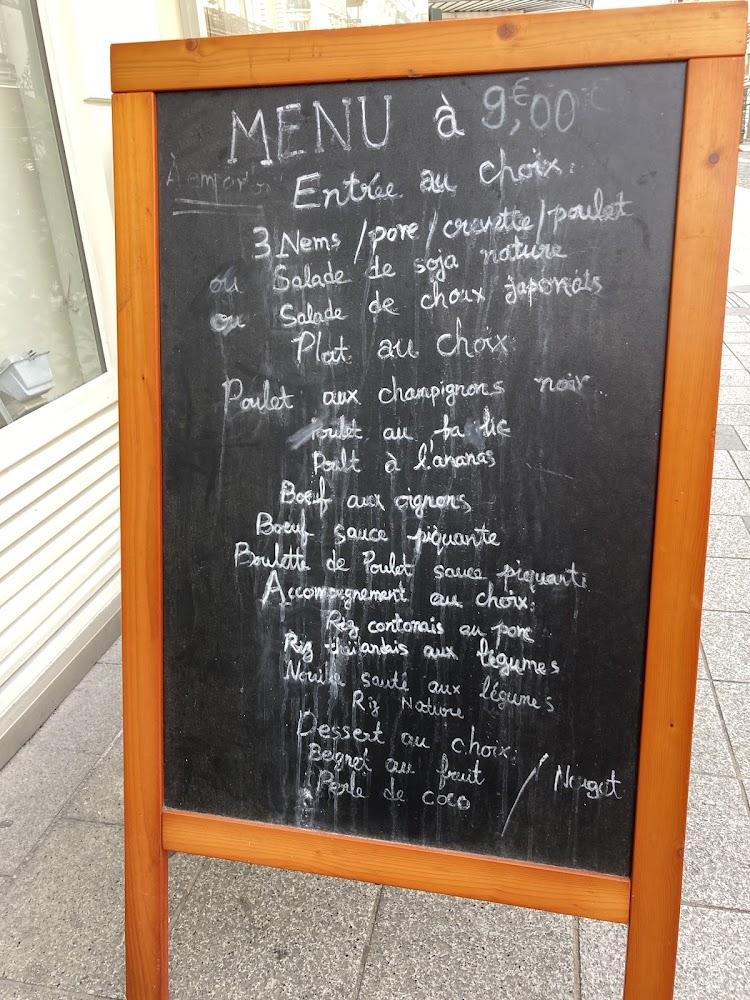 MENU à 9,€00
À emporter
Entrée au choix:
3 Nems / porc / crevette / poulet
ou Salade de soja nature
ou Salade de choux japonais
Plat au choix:
Poulet aux champignons noir
Poulet au basilic
Poult à l'ananas
Bœuf aux oignons
Boeuf sauce piquante
Boulette de Poulet sauce piquante
Accompagnement au choix:
Riz contonais au porc
Riz thailandais aux légumes
Nouille sauté aux légumes
Riz Nature
Dessert au choix:
Beignet au fruit / Nougat
Perle de coco